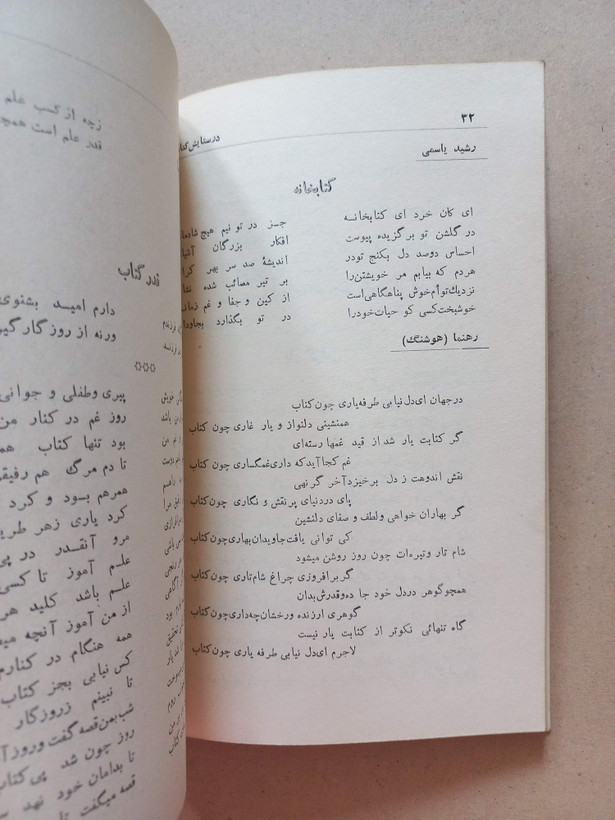 ۳۲
در ستایش کتا
رشید یاسمی
کتابخانه
ای کان خرد ای کتابخانه جز در تو نیم هیچ شادما
در گلشن تو برگزیده پیوست افکار بزرگان آشیا
احساس دوصد دل بکنج تودر اندیشهٔ صد سر بهر کرا
هردم که بیابم مر خویشتن‌را بر تیر مصائب شده نشا
نزدیک توأم خوش پناهگاهی است از کین و جفا و غم زمان
خوشبخت کسی کو حیات خودرا در تو بگذارد بجاودا
رهنما (هوشنگ)
درجهان ای‌دل نیابی طرفه یاری چون کتاب
همنشینی دلنواز و یار غاری چون کتاب
گر کتابت یار شد از قید غمها رسته‌ای
غم کجا آید که داری غمگساری چون کتاب
نقش اندوهت ز دل برخیزد آخر گر نهی
پای در دنیای پر نقش و نگاری چون کتاب
گر بهاران خواهی و لطف و صفای دلنشین
کی توانی یافت جاویدان بهاری چون کتاب
شام تار و تیره‌ات چون روز روشن میشود
گر برافروزی چراغ شام تاری چون کتاب
همچو گوهر در دل خود جا ده و قدرش بدان
گوهری ارزنده و رخشان چه داری چون کتاب
گاه تنهائی نکوتر از کتابت یار نیست
لاجرم ای دل نیابی طرفه یاری چون کتاب
زچه از کسب علم
قدر علم است همچ
قدر کتاب
دارم امید بشنوی
ورنه از روزگار گیر
پیری و طفلی و جوانی
روز غم در کنار من
بود تنها کتاب هم
تا دم مرگ هم رفیق
همرهم بود و کرد
کرد یاری زهر طری
مرو آنقدر در پی
علم آموز تا کسی
علم باشد کلید هر
از من آموز آنچه می
همه هنگام در کنارم
کس نیابی بجز کتاب
تا نبینم زروزگار
شب بمن قصه گفت و روز آ
روز چون شد پی کتا
تا بدامان خود نهد س
قصه میگفت تا